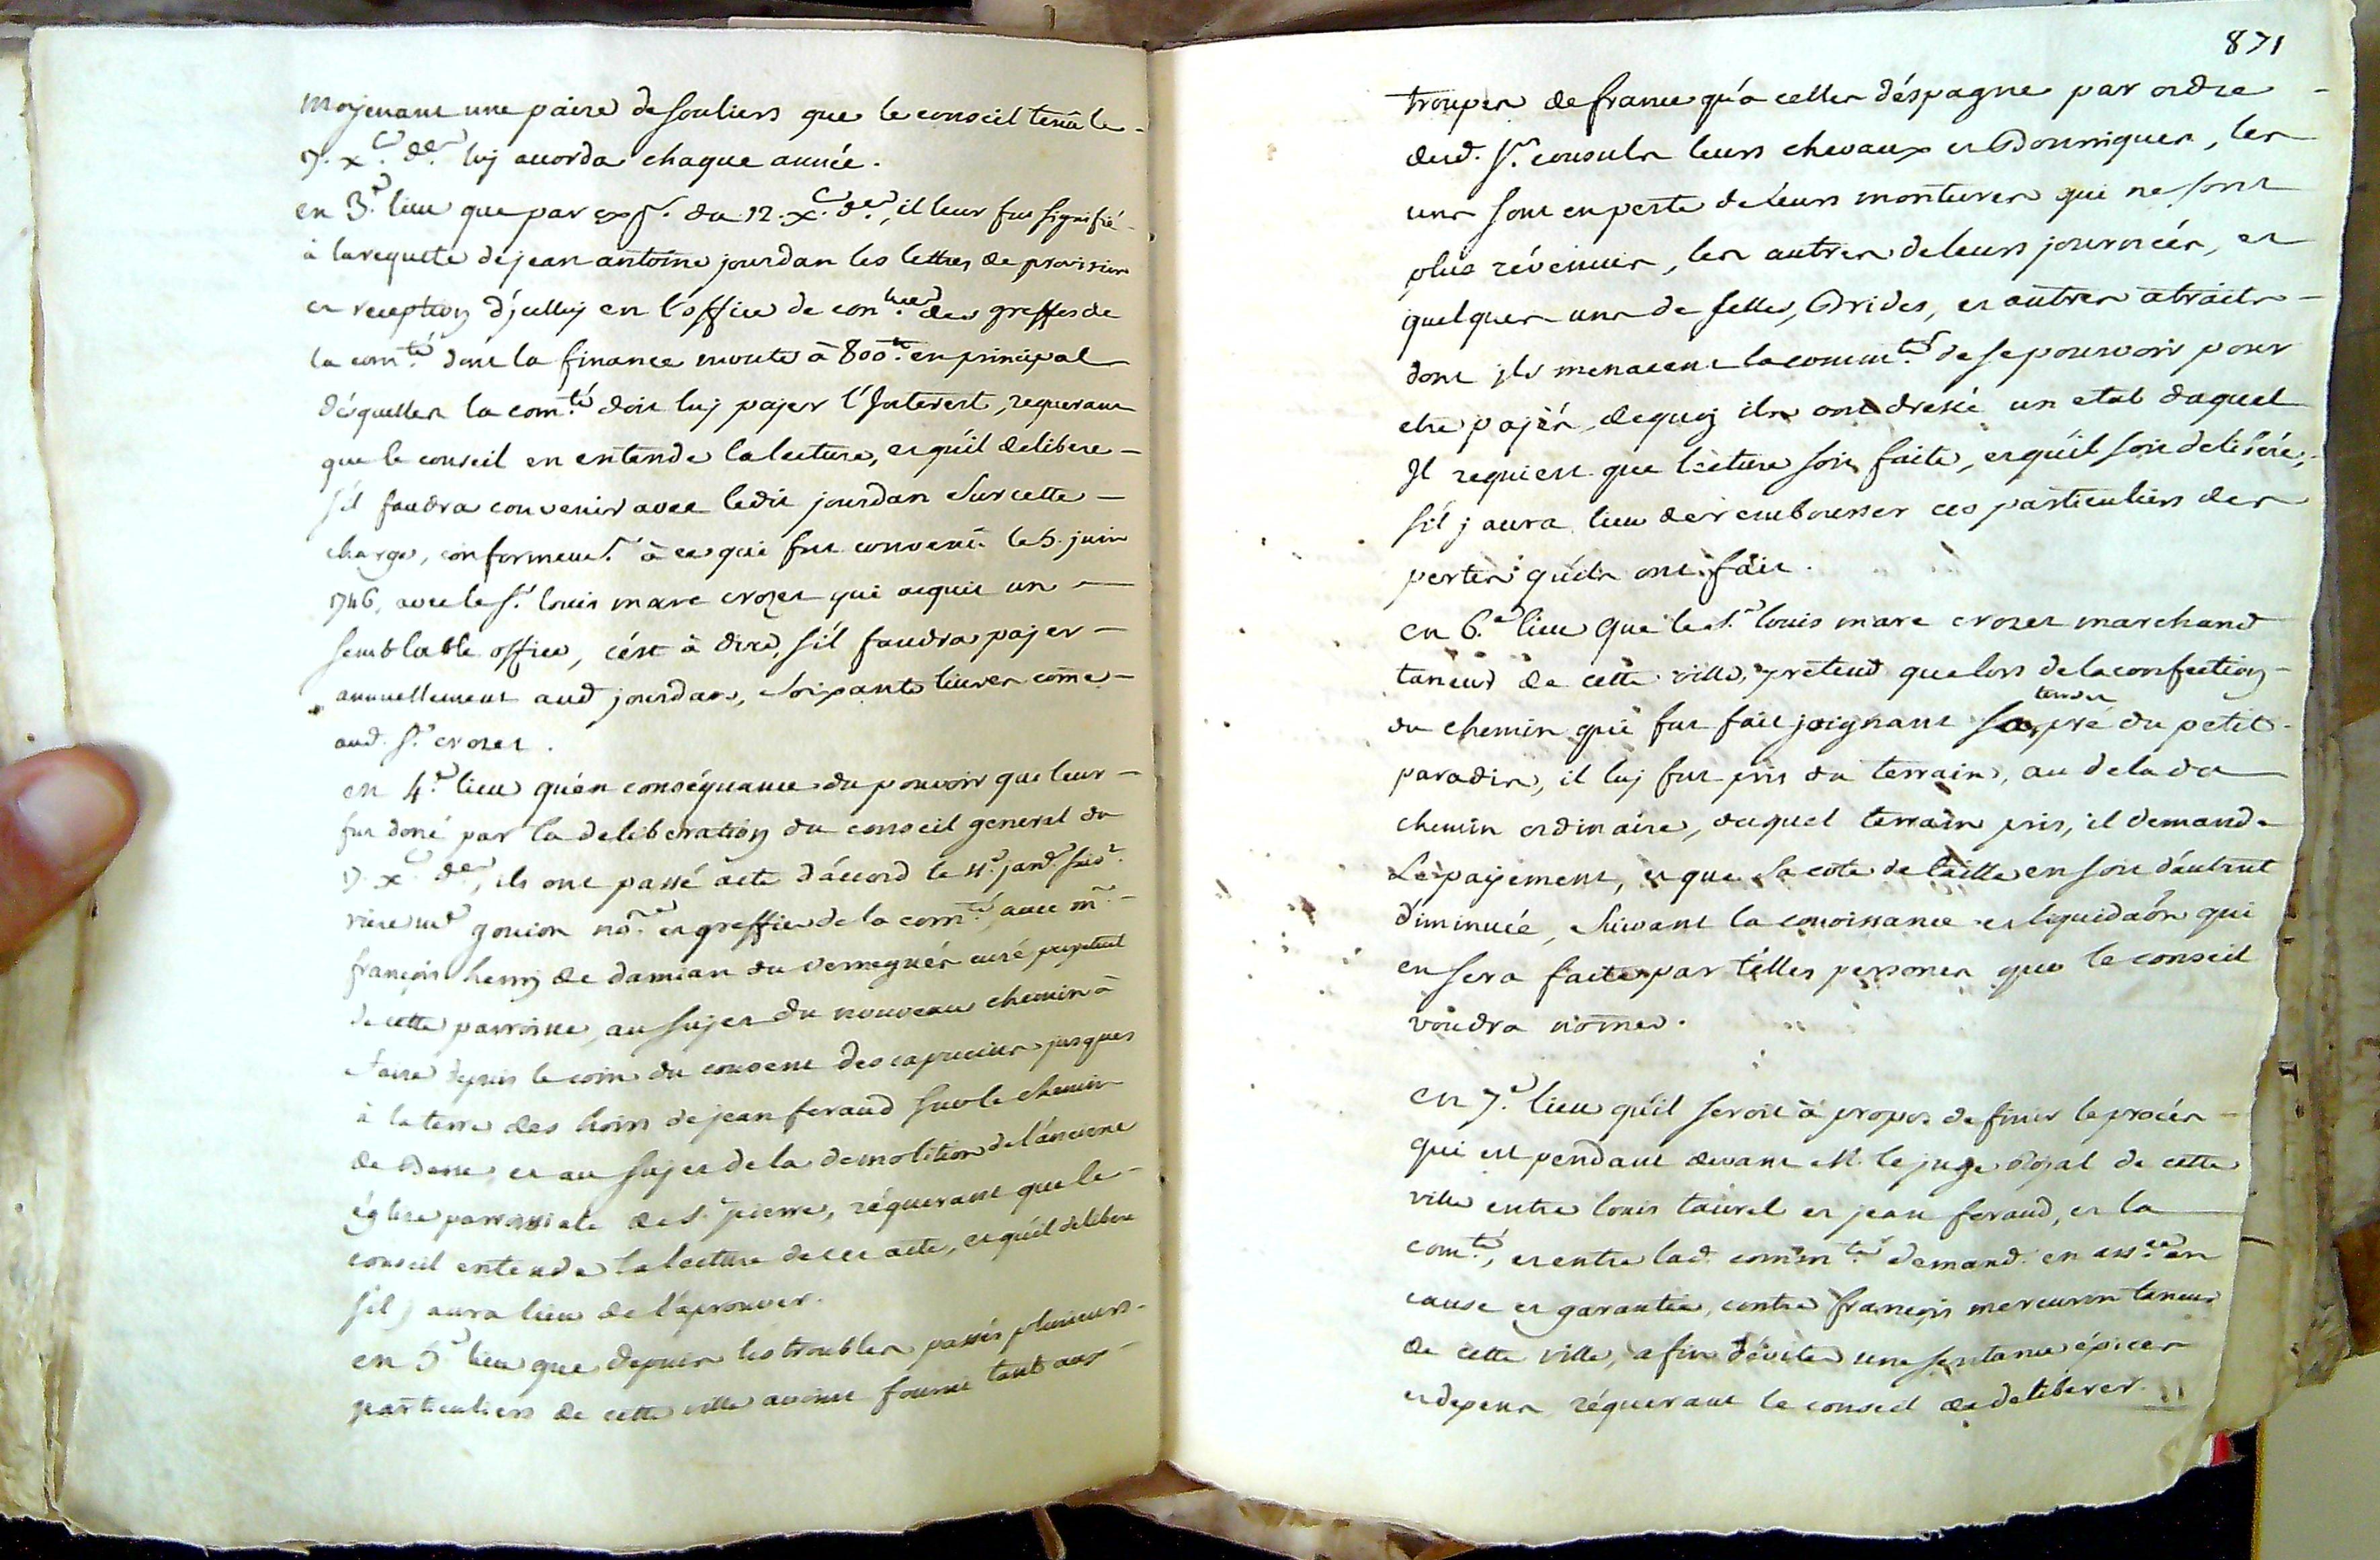 moyenant une paire de souliers que le conseil tenû le
7. x.e d.er luy accorda chaque année.
en 3.e lieu que par exp.t du 12. x.e d.er, il leur fut signifié
à la requete de jean antoine jourdan les lettres de provision
et reception d'jcelluy en l'office de con.lleur des greffes de
la com.té dont la finance monte à 800.tt en principal
désquelles la com.té doit luy payer l'Interest, requerant
que le conseil en entende la lecture, et qu'il delibere
s'il faudra convenir avec ledit jourdan sur cette
charge, conformem.t à ce qui fut convenû le 5. juin
1746, avec le s.r louis marc crozet qui acquit un
semblable office, cést à dire, s'il faudra payer
annuellement aud jourdan, soixante livres come
aud. s.r crozet.
en 4.e lieu qu'en conséquance du pouvoir que leur
fut doné par la deliberation du conseil general du
7. x.e d.er, ils ont passé acte d'accord le 4.e janv.r
riere m.e gonion no.re et greffier de la com.té, avec m.re
françois henry de damian du vernegués curé perpetuel
de cette parroisse, au sujet du nouveau chemin à
faire depuis le coin du couvent des capucins jusques
à la terre des hoirs de jean feraud sur le chemin
de et au sujet de la demolition de l'anciene
église parroissiale de S.t pierre, réquerant que le
conseil entende la lecture de cet acte, et qu'il delibere
s'il y aura lieu de l'aprouver.
en 5.e lieu que depuis les troubles passés plusieurs
particuliers de cette ville avoint fourni tant aux
871
troupes de france qu'a celles d'éspagne par ordre
desd. s.rs consuls leurs chevaux et Bourriques, les
uns sont en perte de leurs montures qui ne sont
plus révenues, les autres de leurs journées, et
quelques uns de selles, Brides, et autres atraits
dont jls menacent la comm.té de se pourvoir pour
etre payés, dequoy ils ont dressé un etat daquel
Il requiert que lecture soit faite, et qu'il soit deliberé,
s'il y aura lieu de rembourser ces particuliers des
pertes qu'ils ont fait.
en 6.e lieu que le s.r louis marc crozet marchand
taneur de cette ville, pretend que lors de la confection
du chemin qui fut fait joignant sa pré du petit
paradis, il luy fut pris du terrain, au dela du
chemin ordinaire, duquel terrain pris, il demande
Le payement, et que sa cote de taille en soit d'autant
diminuée, suivant la conoissance et liquidaôn qui
en sera faite par telles persones que le conseil
voudra nomer.
en 7.e lieu qu'il seroit à propos de finir le procés
qui est pendant devant M. le juge Royal de cette
ville entre louis taurel et jean feraud, et la
com.té, et entre lad. comm.té demand. en ass.ce en
cause et garantie, contre françois mercurin taneur
de cette ville, afin d'éviter une sentance épices
et depens réquerant le conseil de deliberer.